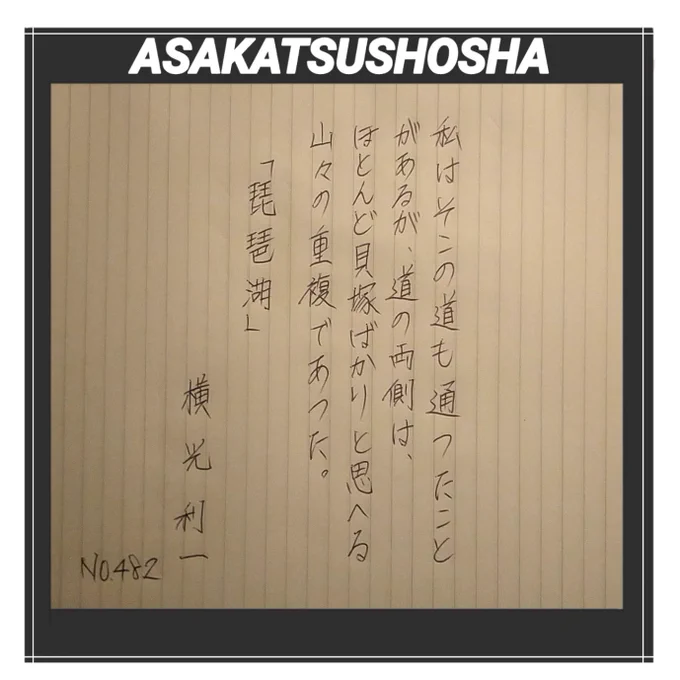 ASAKATSUSHOSHA
私はそこの道も通つたこと
があるが、道の両側は、
ほとんど貝塚ばかりと思へる
山々の重複であつた。
「琵琶湖」
横光利一
No.482